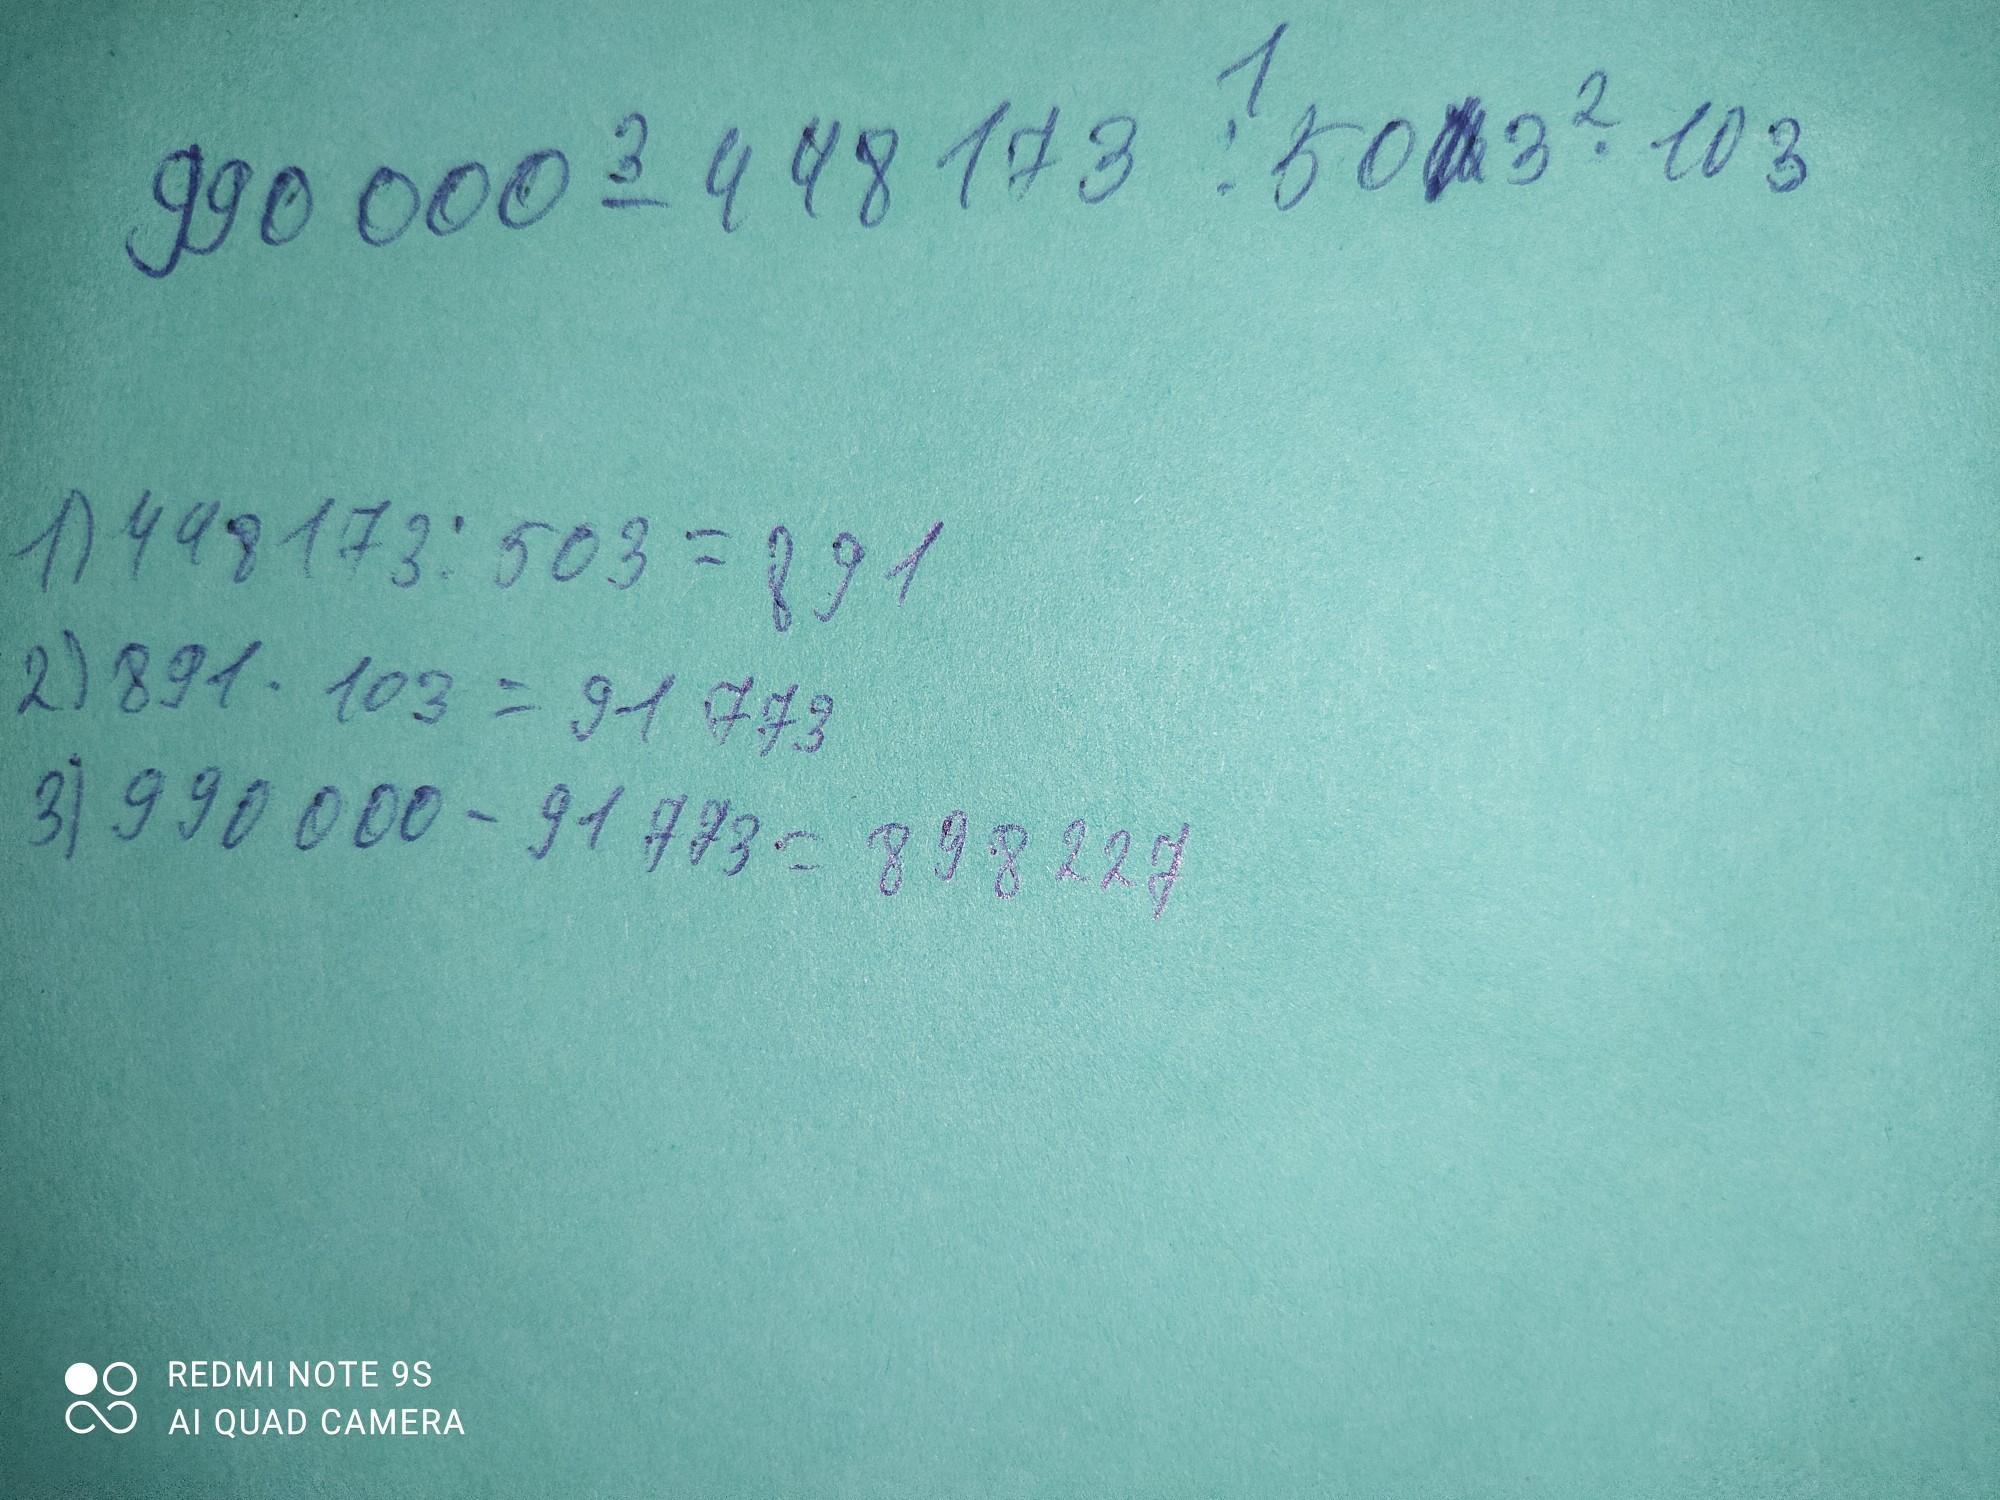 990 000 - 448 173 : 503 · 103
3 1 2
1) 448173 : 503 = 891
2) 891 · 103 = 91 773
3) 990 000 - 91 773 = 898 227
REDMI NOTE 9S
AI QUAD CAMERA